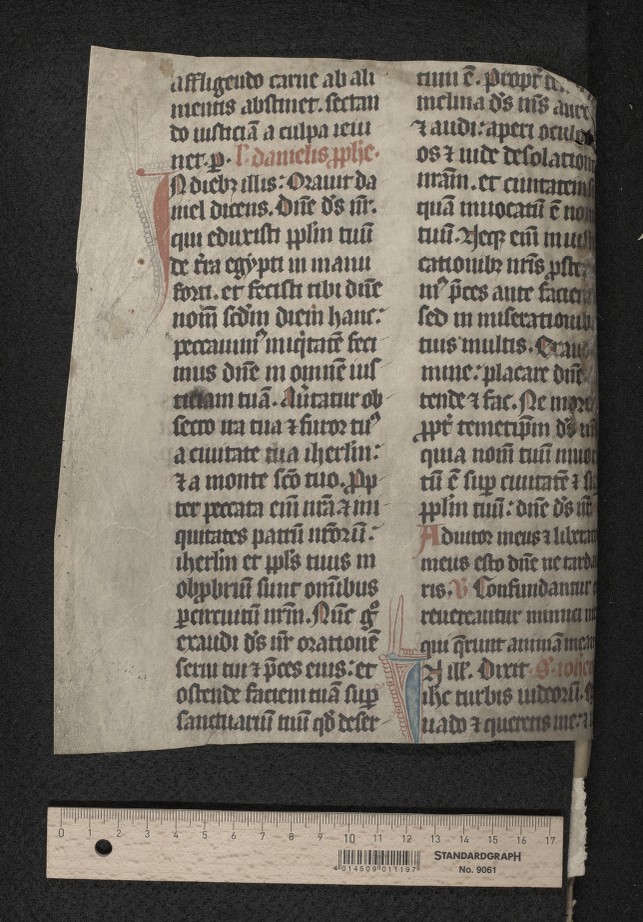 affligendo carne ab ali
mentis abstinet. sectan
do iusticiā a culpa ieiu
net. ꝑ. l' danielis ꝓphe.
In dieb; illis: Orauit da
niel dicens. Dn̄e ds̄ nr̄.
qui eduxisti pplm̄ tuū
de tr̄a egypti in manu
forti. et fecisti tibi dn̄e
nom̄ scd̄m diem hanc:
peccauim᷒ iniq̄tatē feci
mus dn̄e in omnē ius
ticiam tuā. Au̓tatur ob
secro ira tua ⁊ furor tu᷒
a ciuitate tua iherlm̄:
⁊ a monte sc̄o tuo. Ꝓp
ter peccata eni̅ nr̄a ⁊ ini
quitates patrū nr̄orū.
iherlm̄ et ppl̄s tuus in
obꝓbriū sunt omībus
ꝑ circuitū nr̄m. Nūc gͦ
exaudi ds̄ nr̄ orationē
serui tui ⁊ p̄ces eius: et
ostende faciem tuā suꝑ
sanctuariū tuū qd̄ deser
tum ē. Propt̄
melina ds̄ m̄s aurē
⁊ audi: aperi oculo
os ⁊ uide desolation
nr̄am. et ciuitatem
quā inuocatū ē nom
tuū. Neq; eni̅ in iusti
cationib; nr̄is ꝓster
im᷒ p̄ces ante faciem
sed in miserationib
tuis multis. Exaud
mine: placare dn̄e
tende ⁊ fac. Ne more
ꝓpt̄ temetip̄m ds̄
quia nom̄ tuū inuoc
tū ē suꝑ ciuitatē ⁊ su
pplm̄ tuū: dn̄e ds̄ nr̄
Adiutor meus ⁊ liberat
meus esto dn̄e ne tarda
ris. V Confundantur
reuereantur inimici
qui q̄runt animā mea
In ill'. Dixit S. iohe
ihc turbis iudeorū.
uado ⁊ queretis me:
0 1 2 3 4 5 6 7 8 9 10 11 12 13 14 15 16 17
4 014509 011197
STANDARDGRAPH
No. 9061